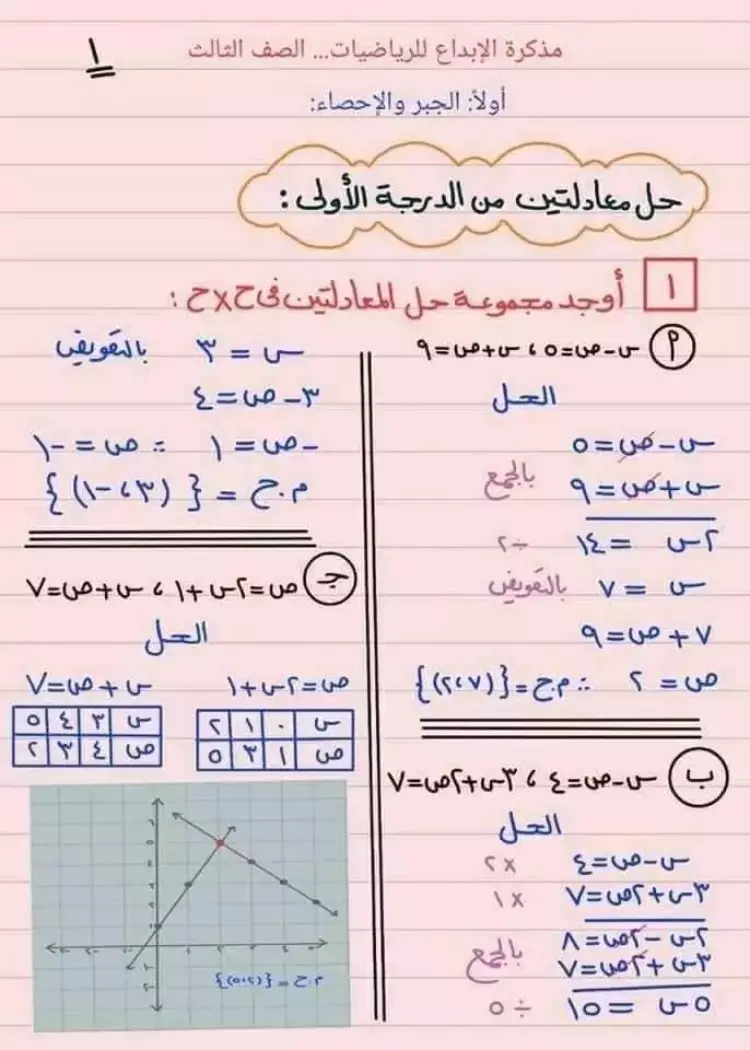 ١
مذكرة الإبداع للرياضيات... الصف الثالث
أولاً: الجبر والإحصاء:
حل معادلتين من الدرجة الأولى :
١ أوجد مجموعة حل المعادلتين فى ح×ح :
٢ س-ص=٥ ، س+ص=٩
الحل
س-ص=٥
س+ص=٩ بالجمع
٢س = ١٤ ÷٢
س = ٧ بالتعويض
٧+ص=٩
ص = ٢ ∴ م.ح={(٧،٢)}
ب س-ص=٤ ، ٣س+٢ص=٧
الحل
س-ص=٤ ×٢
٣س+٢ص=٧ ×١
٢س-٢ص=٨
٣س+٢ص=٧ بالجمع
٥س = ١٥ ÷٥
س = ٣ بالتعويض
٣-ص=٤
-ص=١ ∴ ص=-١
م.ح = {(٣،-١)}
جـ ص=٢س+١ ، س+ص=٧
الحل
ص=٢س+١
س ٠ ١ ٢
ص ١ ٣ ٥
س+ص=٧
س ٣ ٤ ٥
ص ٤ ٣ ٢
م.ح = {(٢،٥)}